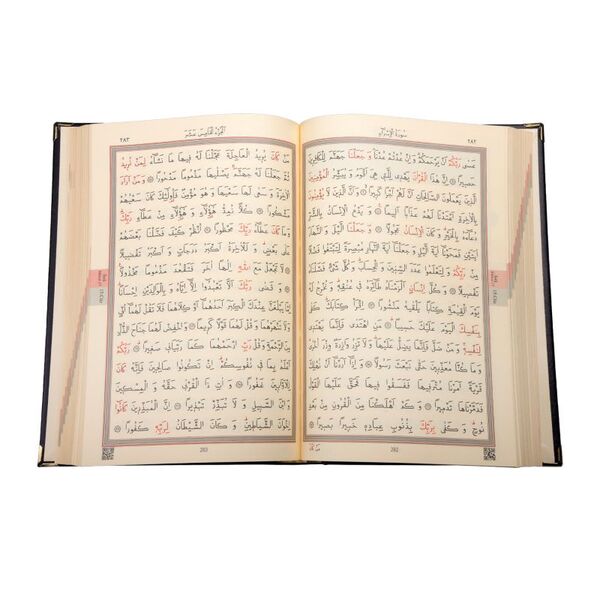 سورة الإسراء ٢٨٢
عَسٰى رَبُّكُمْ اَنْ يَرْحَمَكُمْ وَاِنْ عُدْتُمْ عُدْنَا وَجَعَلْنَا جَهَنَّمَ لِلْكَافِرٖينَ
حَصٖيرًا ﴿٨﴾ اِنَّ هٰذَا الْقُرْاٰنَ يَهْدٖي لِلَّتٖي هِيَ اَقْوَمُ وَيُبَشِّرُ الْمُؤْمِنٖينَ
الَّذٖينَ يَعْمَلُونَ الصَّالِحَاتِ اَنَّ لَهُمْ اَجْرًا كَبٖيرًا ﴿٩﴾ وَاَنَّ الَّذٖينَ لَا يُؤْمِنُونَ
بِالْاٰخِرَةِ اَعْتَدْنَا لَهُمْ عَذَابًا اَلٖيمًا ﴿١٠﴾ وَيَدْعُ الْاِنْسَانُ بِالشَّرِّ
دُعَاءَهُ بِالْخَيْرِ وَكَانَ الْاِنْسَانُ عَجُولًا ﴿١١﴾ وَجَعَلْنَا الَّيْلَ وَالنَّهَارَ
اٰيَتَيْنِ فَمَحَوْنَا اٰيَةَ الَّيْلِ وَجَعَلْنَا اٰيَةَ النَّهَارِ مُبْصِرَةً لِتَبْتَغُوا فَضْلًا
مِنْ رَبِّكُمْ وَلِتَعْلَمُوا عَدَدَ السِّنٖينَ وَالْحِسَابَ وَكُلَّ شَيْءٍ فَصَّلْنَاهُ
تَفْصٖيلًا ﴿١٢﴾ وَكُلَّ اِنْسَانٍ اَلْزَمْنَاهُ طَائِرَهُ فٖي عُنُقِهٖ وَنُخْرِجُ لَهُ
يَوْمَ الْقِيٰمَةِ كِتَابًا يَلْقٰيهُ مَنْشُورًا ﴿١٣﴾ اِقْرَأْ كِتَابَكَ كَفٰى
بِنَفْسِكَ الْيَوْمَ عَلَيْكَ حَسٖيبًا ﴿١٤﴾ مَنِ اهْتَدٰى فَاِنَّمَا يَهْتَدٖي
لِنَفْسِهٖ وَمَنْ ضَلَّ فَاِنَّمَا يَضِلُّ عَلَيْهَا وَلَا تَزِرُ وَازِرَةٌ وِزْرَ اُخْرٰى
وَمَا كُنَّا مُعَذِّبٖينَ حَتّٰى نَبْعَثَ رَسُولًا ﴿١٥﴾ وَاِذَا اَرَدْنَا اَنْ نُهْلِكَ
قَرْيَةً اَمَرْنَا مُتْرَفٖيهَا فَفَسَقُوا فٖيهَا فَحَقَّ عَلَيْهَا الْقَوْلُ
فَدَمَّرْنَاهَا تَدْمٖيرًا ﴿١٦﴾ وَكَمْ اَهْلَكْنَا مِنَ الْقُرُونِ مِنْ بَعْدِ
نُوحٍ وَكَفٰى بِرَبِّكَ بِذُنُوبِ عِبَادِهٖ خَبٖيرًا بَصٖيرًا ﴿١٧﴾
282
مَنْ كَانَ
الجزء الخامس عشر
مَنْ كَانَ يُرٖيدُ الْعَاجِلَةَ عَجَّلْنَا لَهُ فٖيهَا مَا نَشَاءُ لِمَنْ نُرٖيدُ
ثُمَّ جَعَلْنَا لَهُ جَهَنَّمَ يَصْلٰيهَا مَذْمُومًا مَدْحُورًا ﴿١٨﴾ وَمَنْ اَرَادَ
الْاٰخِرَةَ وَسَعٰى لَهَا سَعْيَهَا وَهُوَ مُؤْمِنٌ فَاُولٰئِكَ كَانَ سَعْيُهُمْ
مَشْكُورًا ﴿١٩﴾ كُلًّا نُمِدُّ هٰؤُلَاءِ وَهٰؤُلَاءِ مِنْ عَطَاءِ رَبِّكَ
وَمَا كَانَ عَطَاءُ رَبِّكَ مَحْظُورًا ﴿٢٠﴾ اُنْظُرْ كَيْفَ فَضَّلْنَا بَعْضَهُمْ
عَلٰى بَعْضٍ وَلَلْاٰخِرَةُ اَكْبَرُ دَرَجَاتٍ وَاَكْبَرُ تَفْضٖيلًا ﴿٢١﴾
لَا تَجْعَلْ مَعَ اللّٰهِ اِلٰهًا اٰخَرَ فَتَقْعُدَ مَذْمُومًا مَخْذُولًا ﴿٢٢﴾
وَقَضٰى رَبُّكَ اَلَّا تَعْبُدُوا اِلَّا اِيَّاهُ وَبِالْوَالِدَيْنِ اِحْسَانًا
اِمَّا يَبْلُغَنَّ عِنْدَكَ الْكِبَرَ اَحَدُهُمَا اَوْ كِلَاهُمَا فَلَا تَقُلْ لَهُمَا اُفٍّ
وَلَا تَنْهَرْهُمَا وَقُلْ لَهُمَا قَوْلًا كَرٖيمًا ﴿٢٣﴾ وَاخْفِضْ لَهُمَا جَنَاحَ الذُّلِّ
مِنَ الرَّحْمَةِ وَقُلْ رَبِّ ارْحَمْهُمَا كَمَا رَبَّيَانٖي صَغٖيرًا ﴿٢٤﴾ رَبُّكُمْ
اَعْلَمُ بِمَا فٖي نُفُوسِكُمْ اِنْ تَكُونُوا صَالِحٖينَ فَاِنَّهُ كَانَ
لِلْاَوَّابٖينَ غَفُورًا ﴿٢٥﴾ وَاٰتِ ذَا الْقُرْبٰى حَقَّهُ وَالْمِسْكٖينَ
وَابْنَ السَّبٖيلِ وَلَا تُبَذِّرْ تَبْذٖيرًا ﴿٢٦﴾ اِنَّ الْمُبَذِّرٖينَ كَانُوا
اِخْوَانَ الشَّيَاطٖينِ وَكَانَ الشَّيْطَانُ لِرَبِّهٖ كَفُورًا ﴿٢٧﴾
283